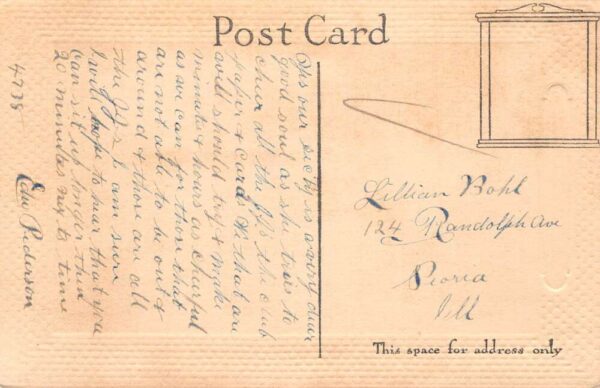 Post Card
Yes our sec'ty is a very dear
good soul as she tries to
cheer all the of the club
paper & cards. We that are
well should try & make
minutes & hours as cheerful
as we can for those that
are not able to be out &
around & those are all
the I am sure
I will hope to hear that you
can sit up longer than
20 minutes next time
Pederson
4738
Lillian Bohl
124 Randolph Ave
Peoria
Ill
This space for address only